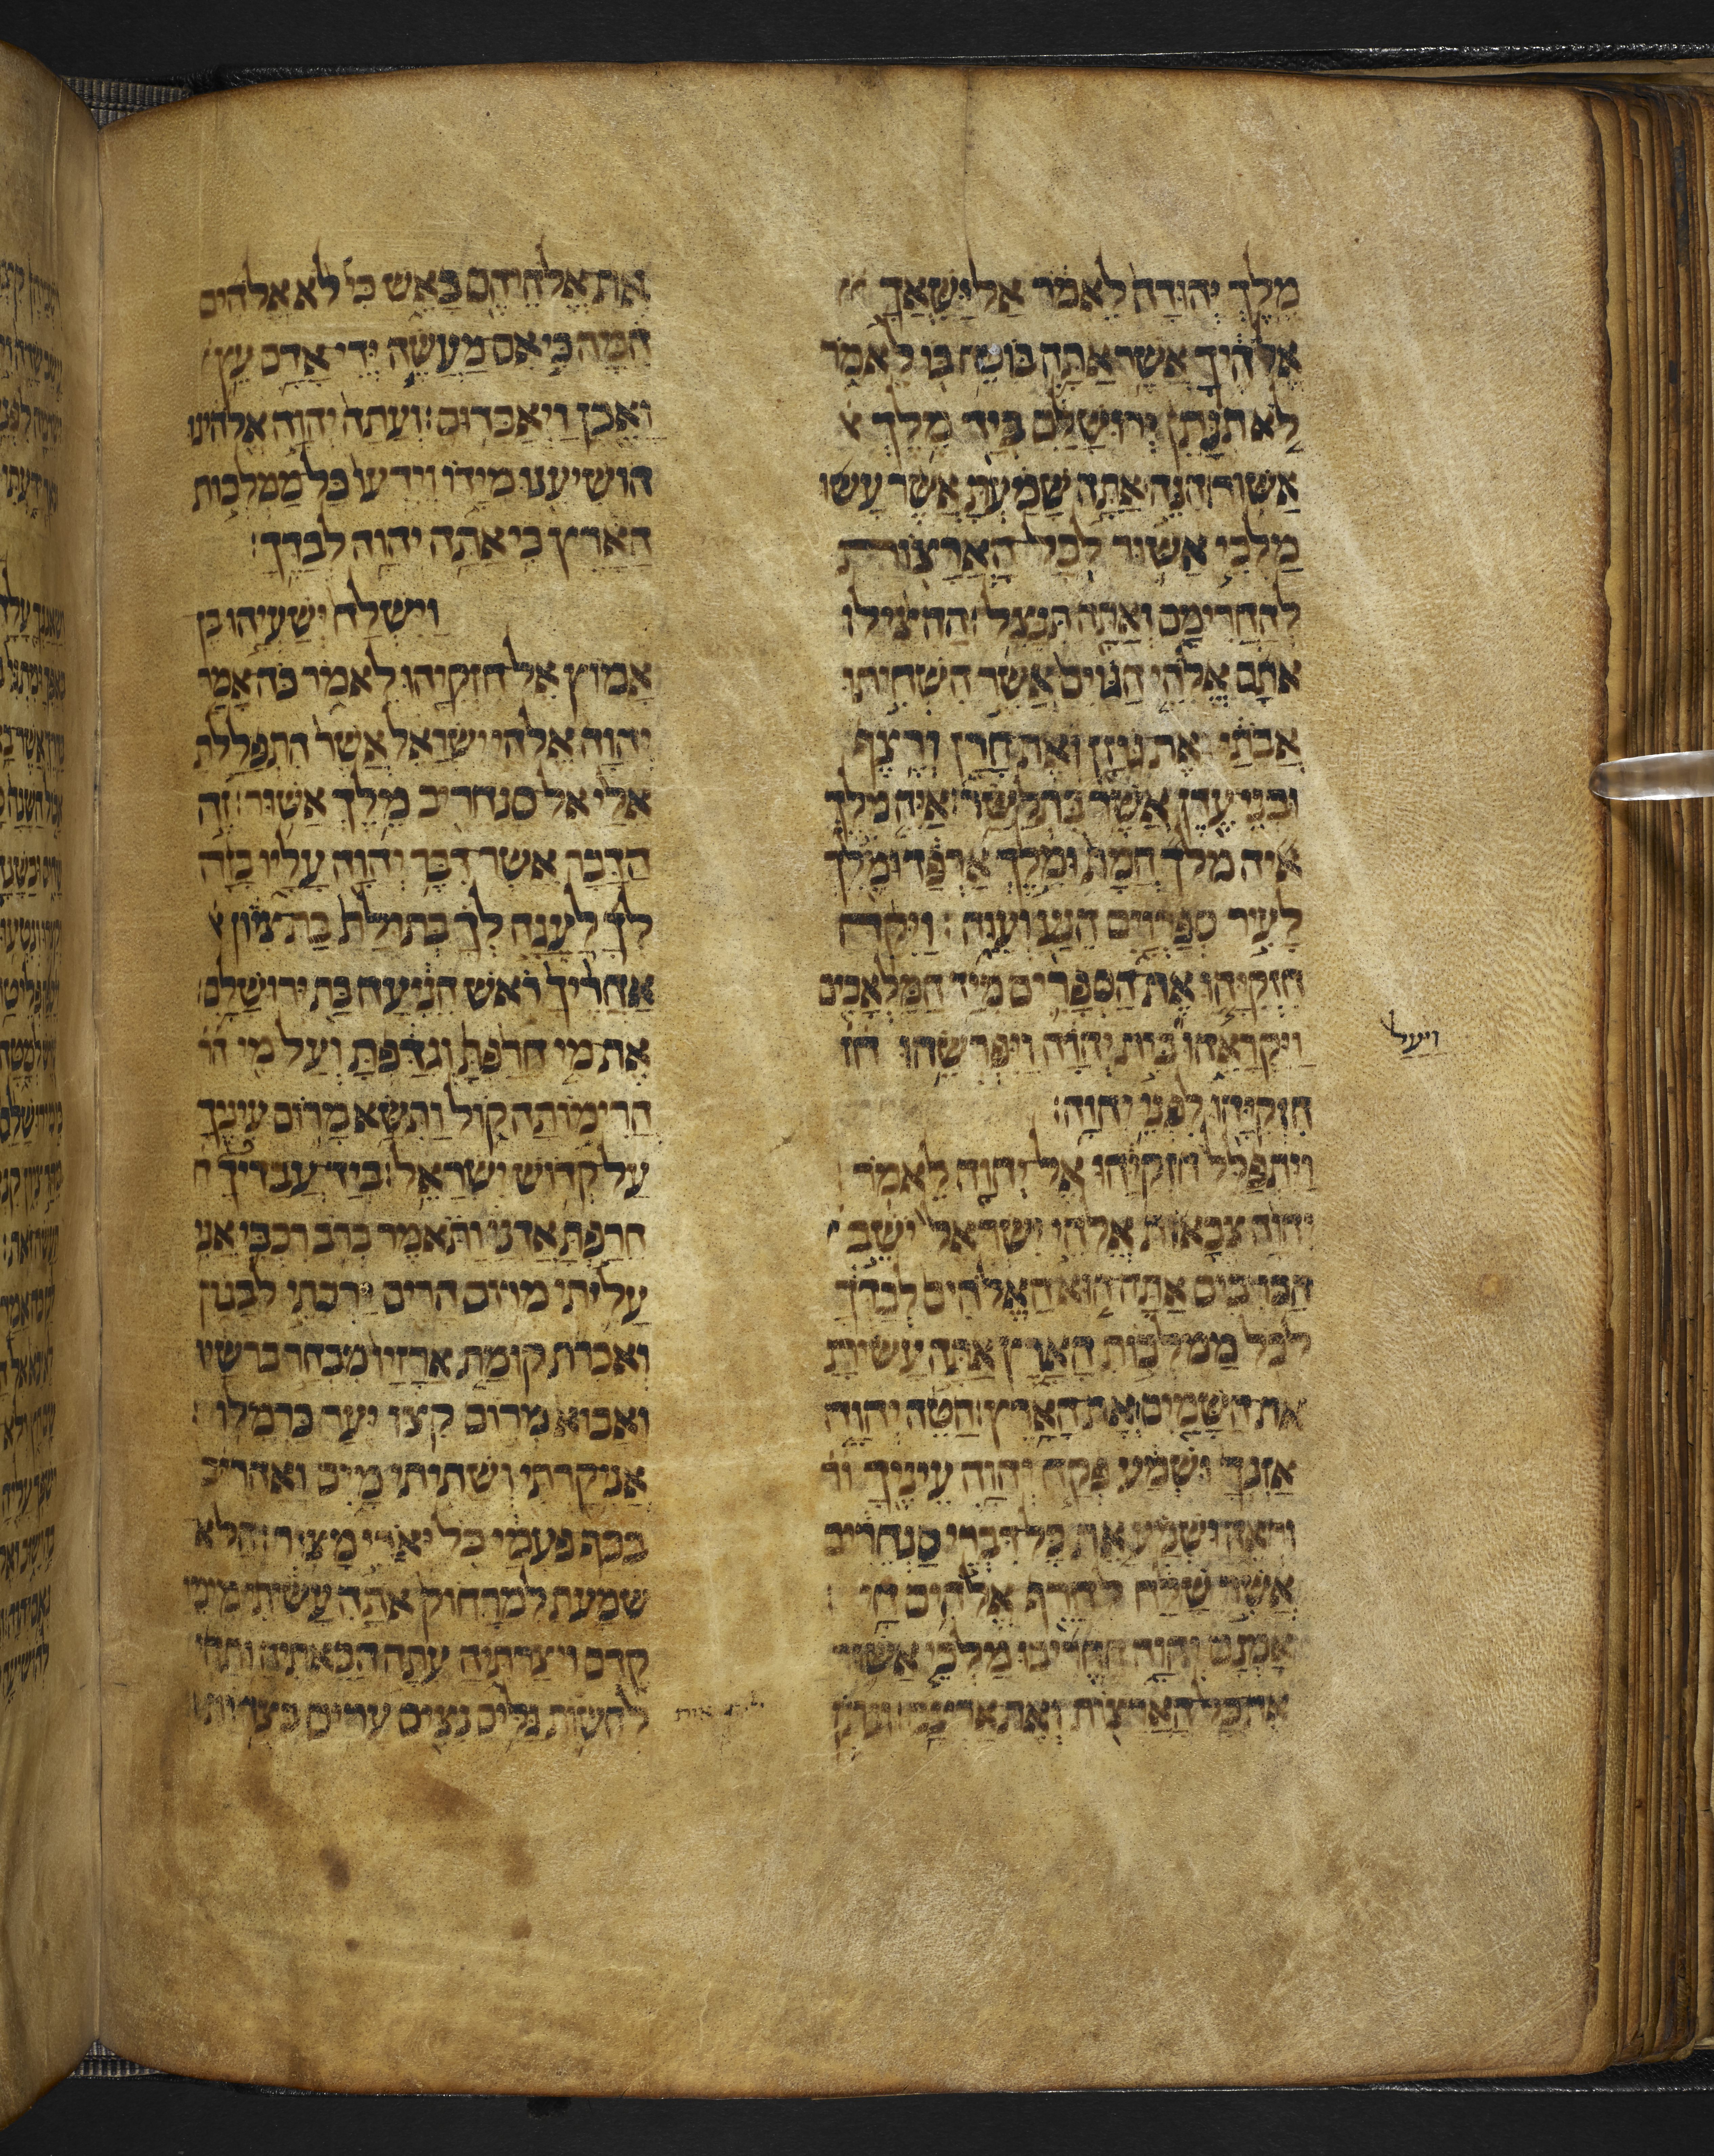 מלך יהודה לאמר אל ישאך
אלהיך אשר אתה בוטח בו לאמר
לא תנתן ירושלם ביד מלך
אשור הנה אתה שמעת אשר עשו
מלכי אשור לכל הארצות
להחרימם ואתה תנצל ההצילו
אתם אלהי הגוים אשר השחיתו
אבתי את גוזן ואת חרן ורצף
ובני עדן אשר בתלשר איה מלך
איה מלך חמת ומלך ארפד ומלך
לעיר ספרוים הנע ועוה ויקח
חזקיהו את הספרים מיד המלאכים
ויקראהו בית יהוה ויפרשהו חז
ויעל
חזקיהו לפני יהוה׃
ויתפלל חזקיהו אל יהוה לאמר
יהוה צבאות אלהי ישראל ישב
הכרבים אתה הוא האלהים לבדך
לכל ממלכות הארץ אתה עשית
את השמים ואת הארץ הטה יהוה
אזנך ושמע פקח יהוה עיניך ור
וראה ושמע את כל דברי סנחריב
אשר שלח לחרף אלהים חי
אמנם יהוה החריבו מלכי אשור
את כל הארצות ואת ארצם ונתן
את אלהיהם באש כי לא אלהים
המה כי אם מעשה ידי אדם עץ
ואבן ויאבדום׃ ועתה יהוה אלהינו
הושיענו מידו וידעו כל ממלכות
הארץ כי אתה יהוה לבדך׃
וישלח ישעיהו בן
אמוץ אל חזקיהו לאמר כה אמר
יהוה אלהי ישראל אשר התפללת
אלי אל סנחריב מלך אשור׃ זה
הדבר אשר דבר יהוה עליו בזה
לך לעגה לך בתולת בת ציון
אחריך ראש הניעה בת ירושלם׃
את מי חרפת וגדפת ועל מי הר
הרימותה קול ותשא מרום עיניך
על קדוש ישראל׃ ביד עבדיך ח
חרפת אדני ותאמר ברב רכבי אני
עליתי מרום הרים ירכתי לבנון
ואכרת קומת ארזיו מבחר ברשיו
ואבוא מרום קצו יער כרמלו׃
אני קרתי ושתיתי מים ואחריב
בכף פעמי כל יארי מצור׃ הלא
שמעת למרחוק אתה עשיתי מימי
קדם ויצרתיה עתה הבאתיה ותהי
להשות גלים נצים ערים בצרות׃